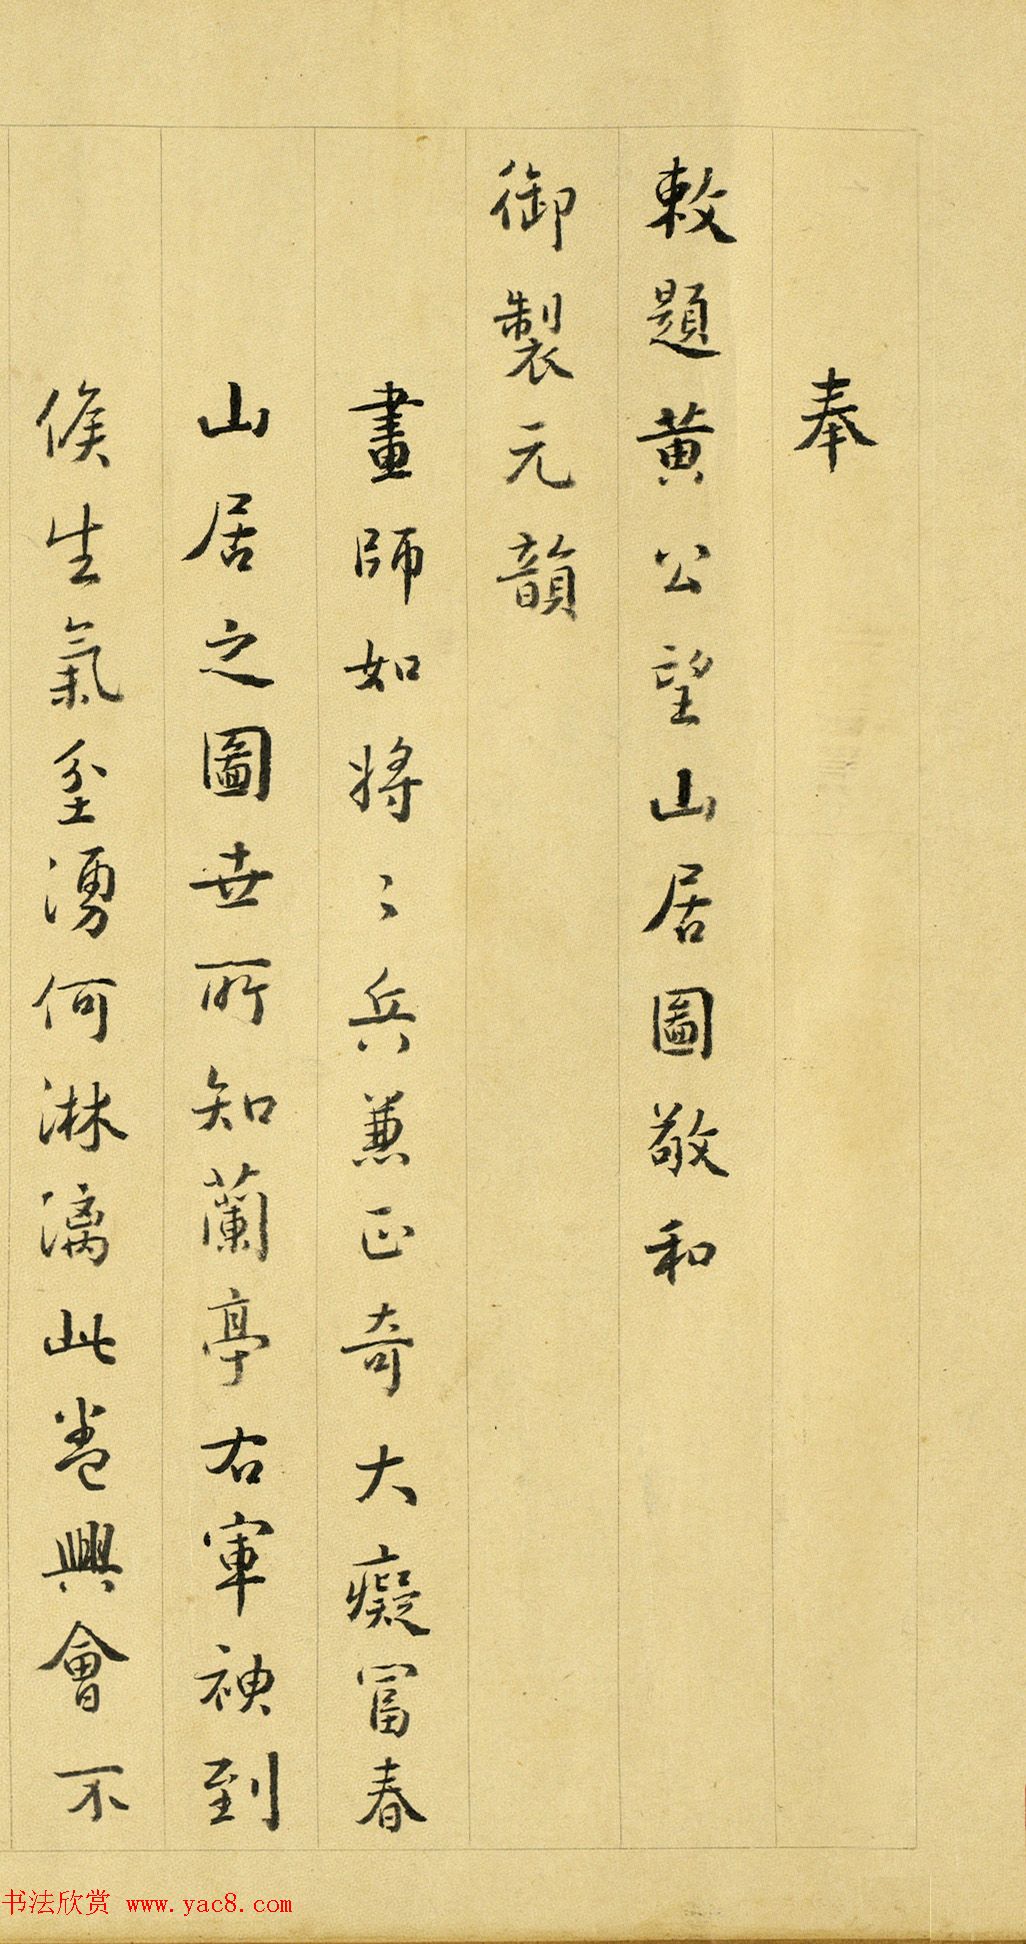 奉
敕題黃公望山居圖敬和
御製元韻
畫師如將〻兵兼正奇大癡富春
山居之圖世所知蘭亭右軍神到
候生氣坌湧何淋漓此卷興會不
书法欣赏 www.yac8.com